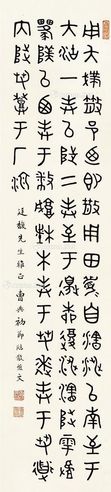 用夨散邑乃即散用田眉自瀗涉以南至于
大沽一封以陟二封至于邊柳復涉瀗陟雩
以西封于城楮木封于芻逨封于芻道
内陟芻登于厂湶
先生雅正 曹典初 節臨散盤文